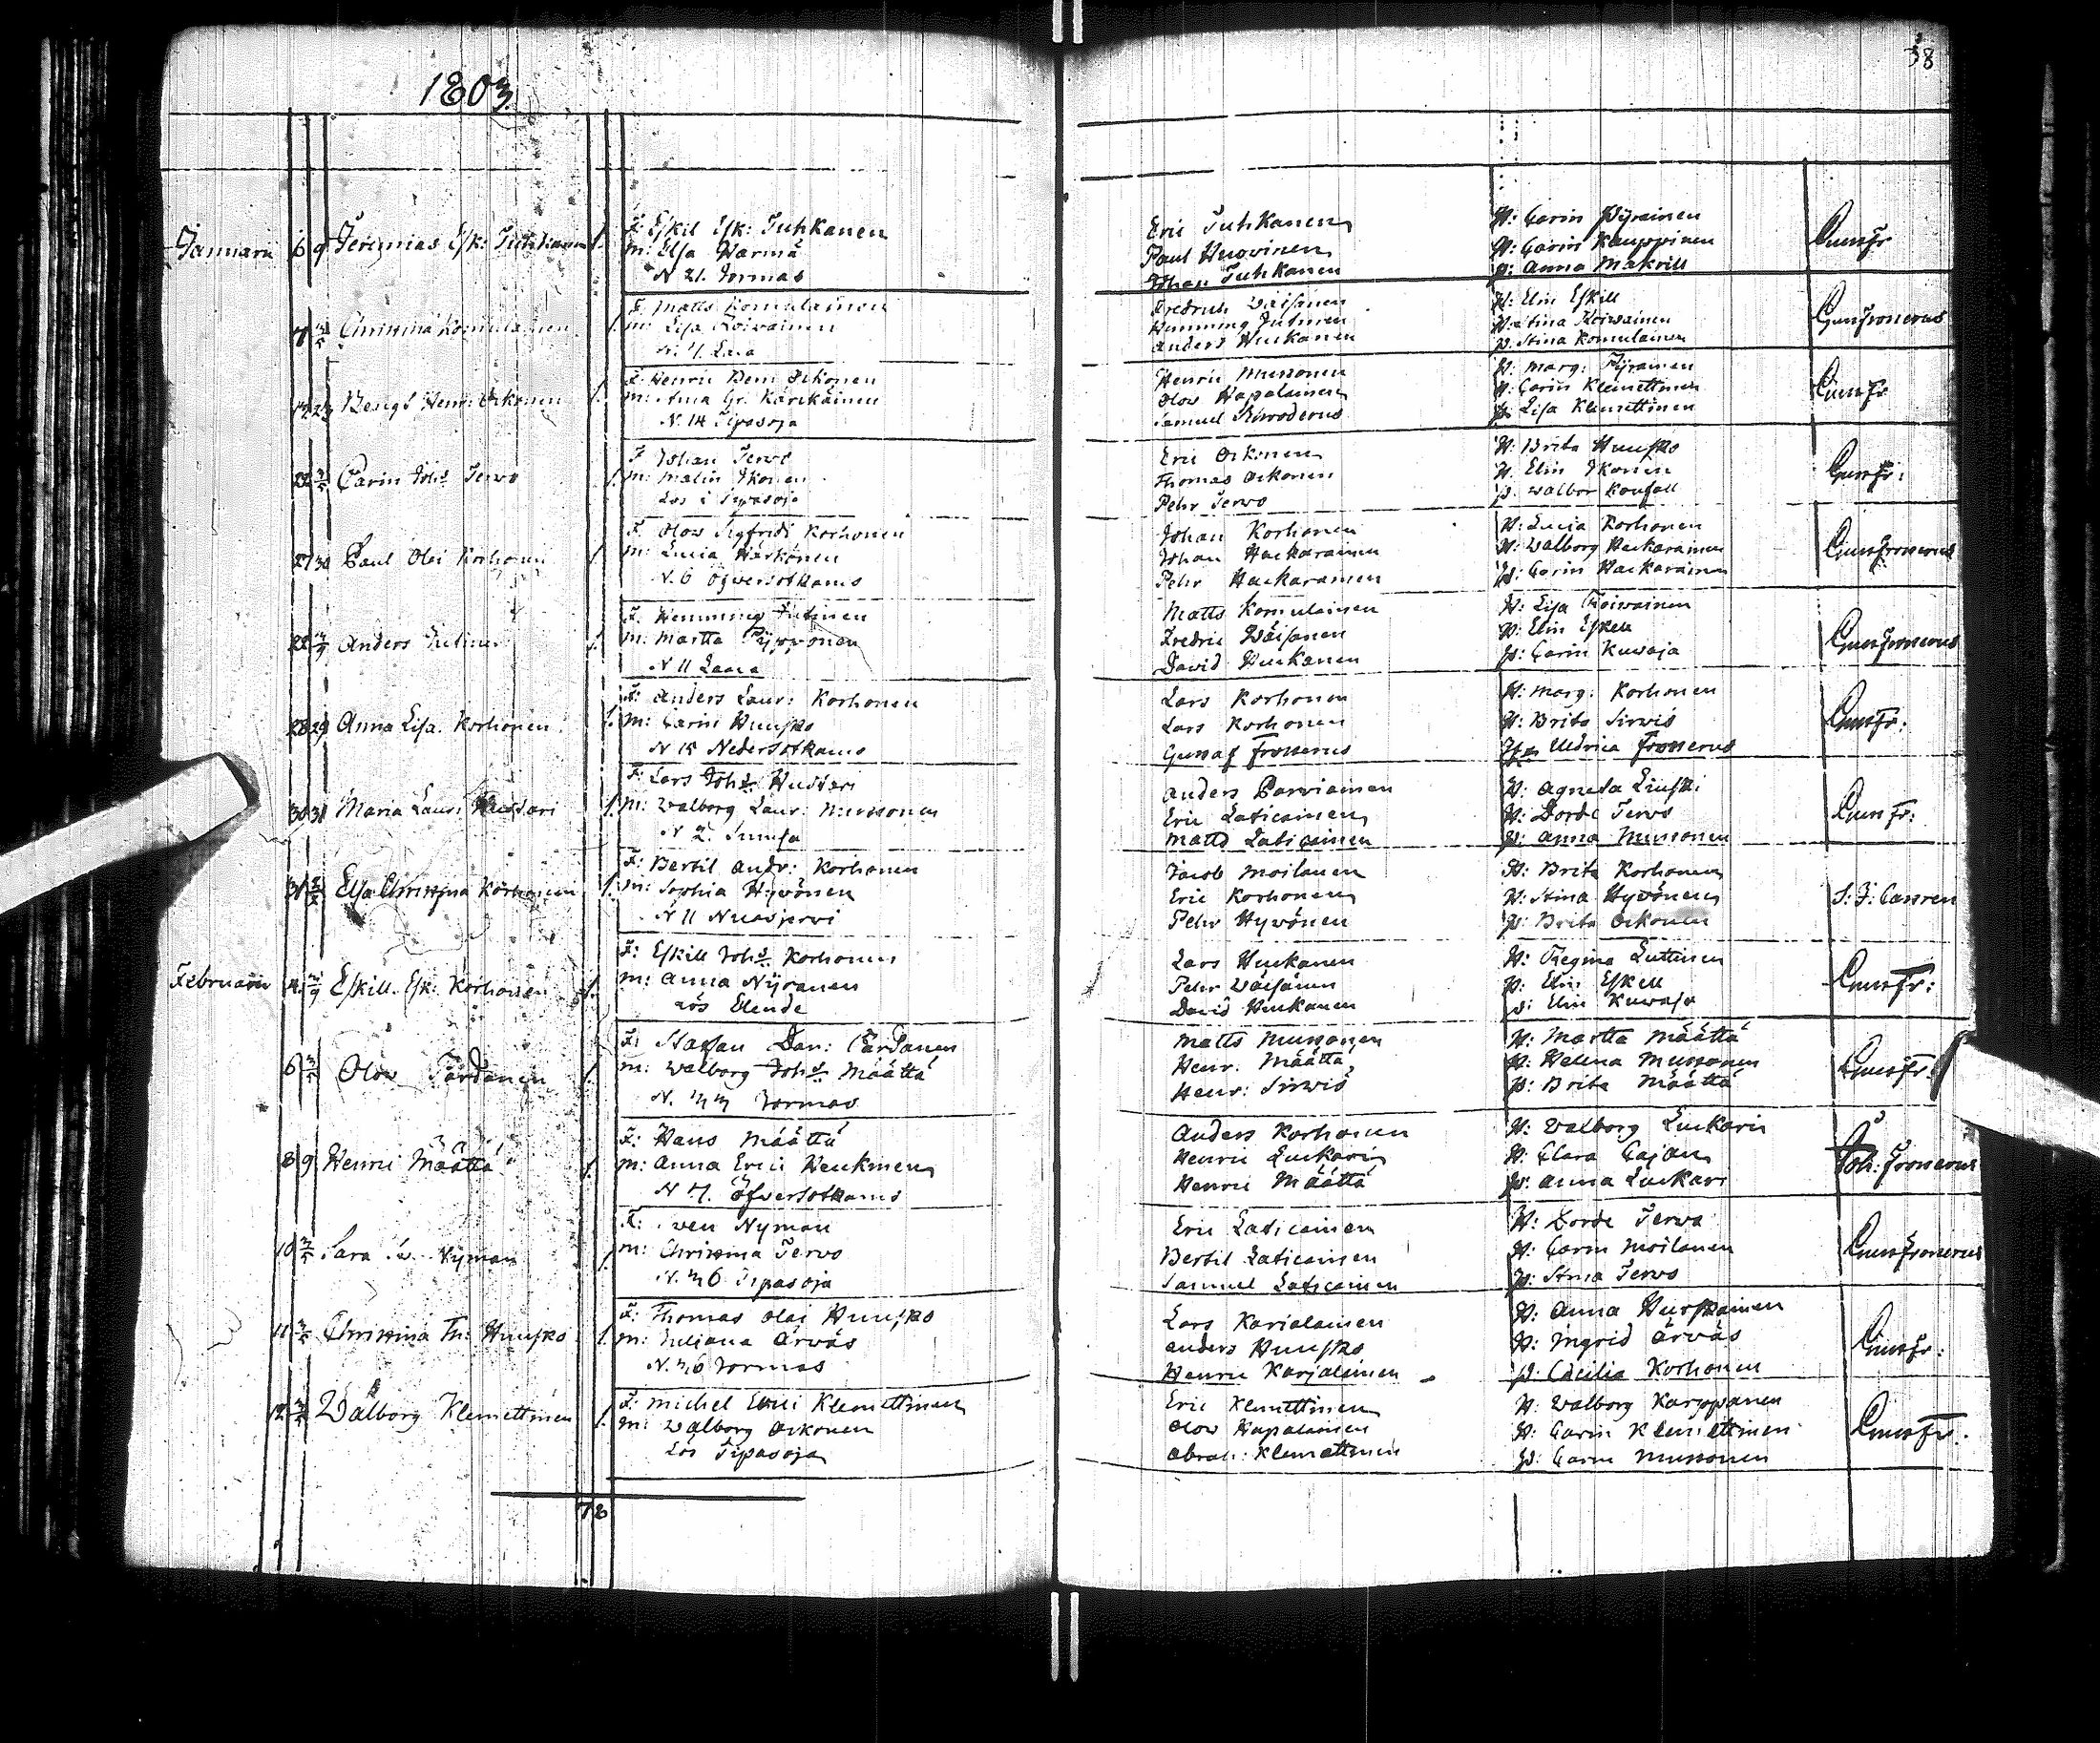 1803.
38
Januari 6 9 Jeremias Esk: Tuhkanen 1.
F. Eskil Esk: Tuhkanen
M: Elsa Harmä
N 21. Jormas
Eric Tuhkanen
Paul Huovinen
Johan Tuhkanen
H: Carin Pyrainen
H: Carin Kauppinen
p: Anna Makrill
Gust Fr
7 Christina Komulainen 1.
F. Matts Komulainen
M: Lisa Koivainen
N. 7. Laca
Fredrich Väisänen
Hemming Jutinen
Anders Huckanen
H: Elin Eskill
H: Stina Koivainen
p: Stina Komulainen
Gust Fronerus
Bengt Henr: Ockonen 1.
F. Henric Ockonen
M: Anna Gr. Karckainen
N. 14 Tipasoja
Henric Mustonen
Olow Hapalainen
Samuel
H: Marg: Pyrainen
H: Carin Klemettinen
p: Lisa Klemettinen
Gust Fr
22 Carin Johs Tervo 1.
F Johan Tervo
M: Malin Ikonen
Lös i Tipasoja
Eric Ockonen
Thomas Ockonen
Pehr Tervo
H: Brita Huusko
H: Elin Ikonen
p. Walbor
Gust Fr:
27 30 Paul Olai Korhonen 1.
F. Olow Sigfridi Korhonen
M: Lucia Härkönen
N. 6 Öfversotkamo
Johan Korhonen
Johan Hackarainen
Pehr Hackarainen
H: Lucia Korhonen
H: Walborg Hackarainen
p: Carin Hackarainen
Gust Fronerus
Anders Jutinen 1.
F. Hemming Jutinen
M: Martta Pyyvonen
N 11 Laaca
Matts Komulainen
Fredric Väisänen
David Huckanen
H: Lisa Koivainen
H: Elin Eskell
p: Carin Kuvaja
Gust Fronerus
28 29 Anna Lisa. Korhonen 1.
F: Anders Laur: Korhonen
M: Carin Huusko
N 15 Nedersotkamo
Lars Korhonen
Lars Korhonen
Gustaf Fronerus
H: Marg: Korhonen
H: Brita Sirviö
Uldrica Fronerus
Gust Fr:
30 31 Maria Laur: 1.
F: Lars Johs
M: Walborg Laur: Mustonen
N 2. Sumsa
Anders Parviainen
Eric Laticainen
Matts Laticainen
H: Agneta
H: Dorde Tervo
p: Anna Mustonen
Gust Fr:
31 Elsa Christina Korhonen 1.
F: Bertil Andr: Korhonen
M: Sophia Hyvönen
N 11 Nuasjervi
Jacob Moilanen
Eric Korhonen
Pehr Hyvönen
H: Brita Korhonen
H: Stina Hyvönen
p: Brita Ockonen
Castren
Februarii 4. Eskill. Esk: Korhonen 1.
F: Eskill Johs Korhonen
M: Anna Nyranen
Lös Elende
Lars Huckanen
Pehr Väisänen
David Huckanen
H: Regina Luttinen
H: Elin Eskell
p: Elin Kuvaja
Gust Fr:
6 Olow Pardanen 1.
F: Staffan Dan: Pardanen
M: Walborg Johs Määttä
N. 33 Jormas
Matts Mustonen
Henr: Määttä
Henr: Sirviö
H: Martta Määttä
H: Helena Mustonen
p: Brita Määttä
Gust Fr:
8 9 Henric Määttä 1.
F: Hans Määttä
M: Anna Erici Heickinen
N 7. Öfversotkamo
Anders Korhonen
Henric Luckari
Henric Määttä
H: Walborg Luckari
H: Clara Cajan
p: Anna Luckari
Joh: Fronerus
10 Sara Sv. Nyman 1.
F: Sven Nyman
M: Christina Tervo
N. 36 Tipasoja
Eric Laticainen
Bertil Laticainen
Samuel Laticainen
H: Dorde Tervo
H: Carin Moilanen
p: Stina Tervo
Gust Fronerus
11 Christina Th: Huusko 1.
F: Thomas Olai Huusko
M: Juliana Ärväs
N. 36 Jormas
Lars Karialainen
Anders Huusko
Henric Karjalainen
H: Anna Huuskainen
H: Ingrid Ärväs
p: Cecilia Korhonen
Gust Fr:
12 Walborg Klemettinen 1.
F: Michel Erici Klemettinen
M: Walborg Ockonen
Lös Tipasoja
Eric Klemettinen
Olow Hapalainen
Abrah: Klemettinen
H: Walborg Karppanen
H: Carin Klemettinen
p: Carin Mustonen
Gust Fr.
78